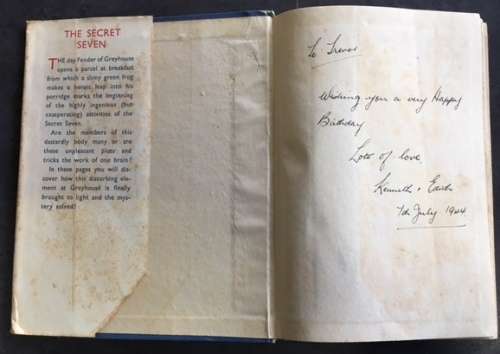 THE SECRET
SEVEN
THE day Fender of Greyhouse
opens a parcel at breakfast
from which a slimy green frog
makes a heroic leap into his
porridge marks the beginning
of the highly ingenious (but
exasperating) activities of the
Secret Seven.
Are the members of this
dastardly body many or are
these unpleasant plots and
tricks the work of one brain?
In these pages you will dis-
cover how this disturbing ele-
ment at Greyhouse is finally
brought to light and the mys-
tery solved!
To Trevor
Wishing you a very Happy
Birthday
Lots of love
Kenneth +
7th July 1944